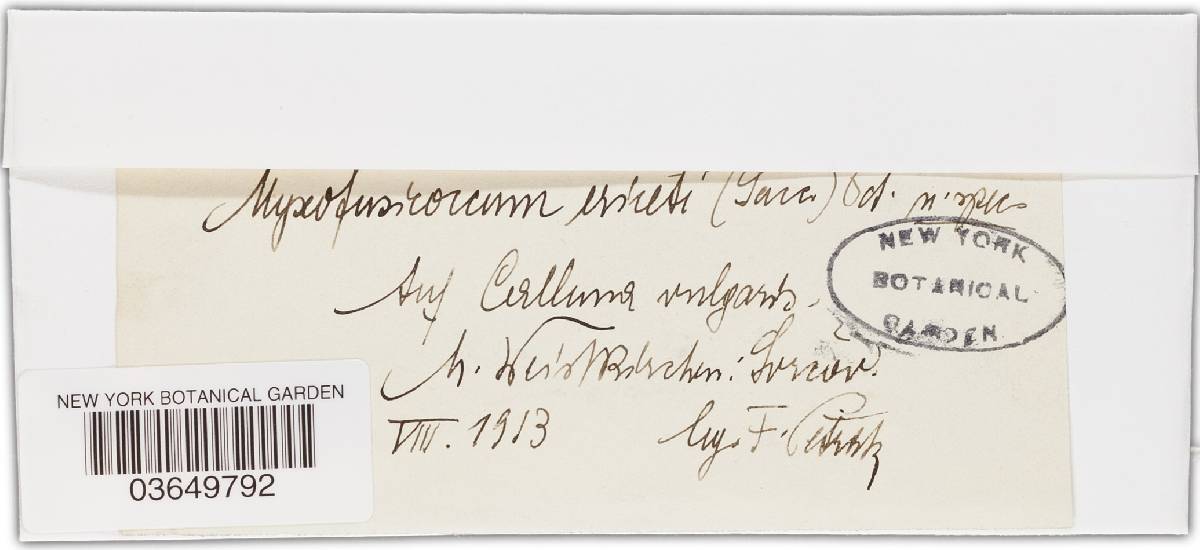 Myxofusicoccum ericeti (Sacc.) Pet. n. spec.
Auf Calluna vulgaris.
M. Weisskirchen: Sorcov.
VIII. 1913 leg. F. Petrak
NEW YORK
BOTANICAL
GARDEN
NEW YORK BOTANICAL GARDEN
03649792